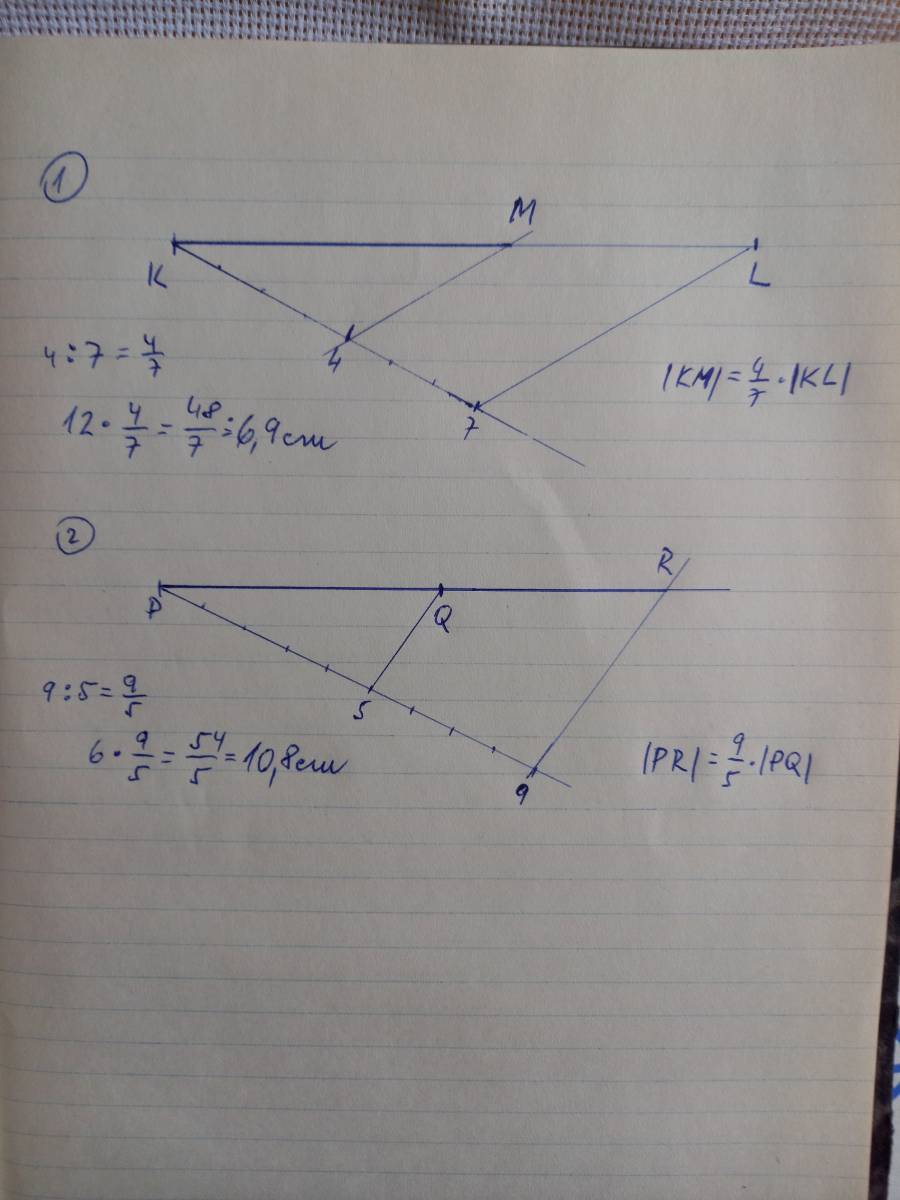 1
M
K
L
4
4:7 = 4/7
|KM| = 4/7 · |KL|
12 · 4/7 = 48/7 ≐ 6,9 cm
7
2
R
P
Q
9:5 = 9/5
5
6 · 9/5 = 54/5 = 10,8 cm
|PR| = 9/5 · |PQ|
9